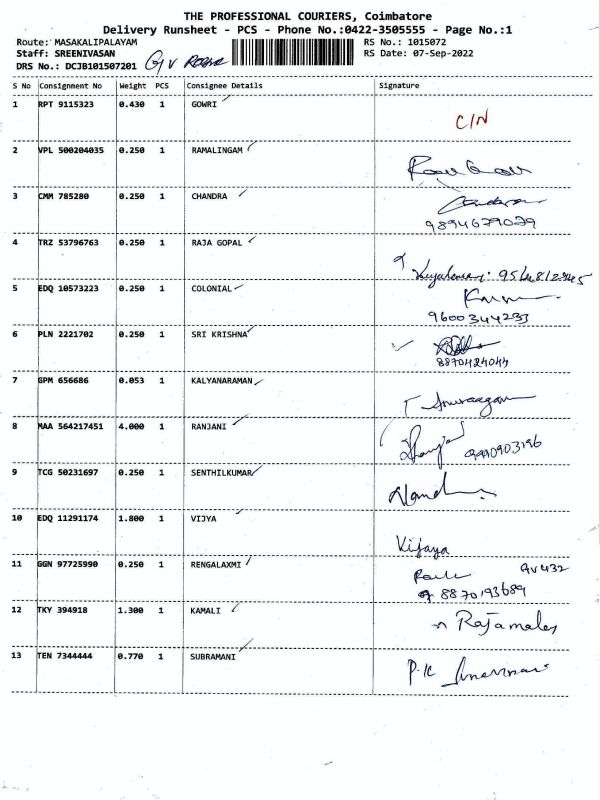 THE PROFESSIONAL COURIERS, Coimbatore
Delivery Runsheet - PCS - Phone No.:0422-3505555 - Page No.:1
Route: MASAKALIPALAYAM RS No.: 1015072
Staff: SREENIVASAN RS Date: 07-Sep-2022
DRS No.: DCJB101507201 G V
S No Consignment No Weight PCS Consignee Details Signature
1 RPT 9115323 0.430 1 GOWRI
C/N
2 VPL 500204035 0.250 1 RAMALINGAM
3 CMM 785280 0.250 1 CHANDRA
9894679029
4 TRZ 53796763 0.250 1 RAJA GOPAL
5 EDQ 10573223 0.250 1 COLONIAL
9600344233
6 PLN 2221702 0.250 1 SRI KRISHNA
8870424044
7 GPM 656686 0.053 1 KALYANARAMAN
8 MAA 564217451 4.000 1 RANJANI
9 TCG 50231697 0.250 1 SENTHILKUMAR
10 EDQ 11291174 1.800 1 VIJYA
Vijaya
11 GGN 97725990 0.250 1 RENGALAXMI
8870193689
12 TKY 394918 1.300 1 KAMALI
13 TEN 7344444 0.770 1 SUBRAMANI
P.K